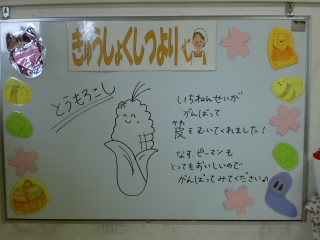 きゅうしょくしつより
とうもろこし
いちねんせいが
がんばって
皮をむいてくれました!
かわ
なす、ピーマンも
とってもおいしいので
がんばってみてください♪